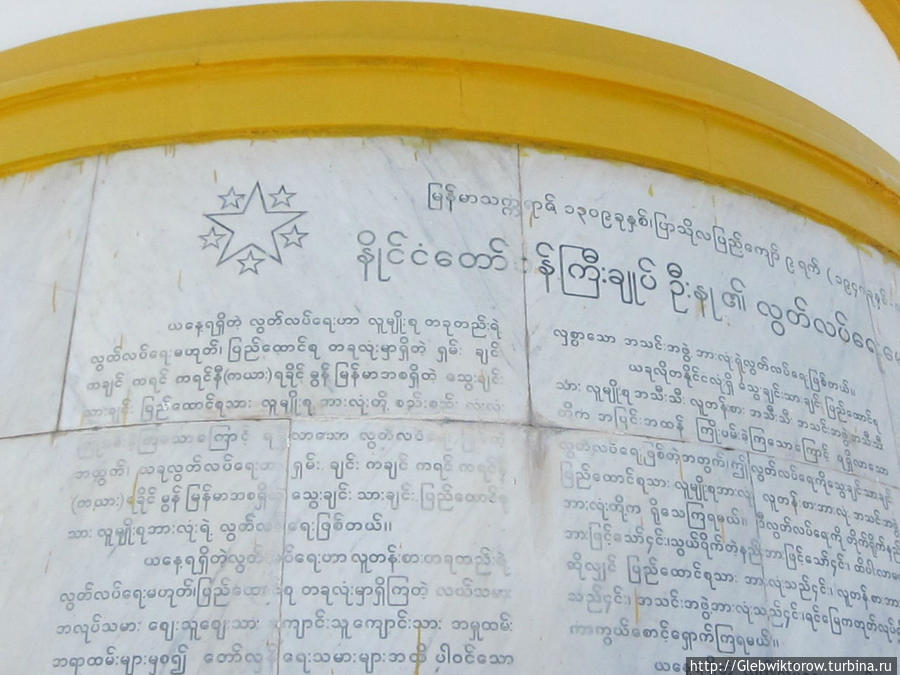 မြန်မာသက္ကရာဇ် ၁၃၀၉ ခုနှစ်၊ ပြာသိုလပြည့်ကျော် ၉ ရက် (၁၉၄၈
နိုင်ငံတော် န်ကြီးချုပ် ဦးနု ၏ လွတ်လပ်ရေး
ယနေ့ရရှိတဲ့ လွတ်လပ်ရေးဟာ လူမျိုးရ တခုတည်းရဲ့
လွတ်လပ်ရေးမဟုတ်၊ ပြည်ထောင်ရ တရလုံးမှာရှိတဲ့ ရှမ်း ချင်း
ကချင် ကရင် ကရင်နီ(ကယား)ရခိုင် မွန် မြန်မာအစရှိတဲ့ သွေးချင်း
သားချင်း ပြည်ထောင်စုသား လူမျိုးရ အားလုံးတို့
ရ လာသော လွတ်လပ်ရေး
အတွက်၊ ယခုလွတ်လပ်ရေးဟာ ရှမ်း ချင်း ကချင် ကရင် ကရင်နီ
(ကယား)ရခိုင် မွန် မြန်မာအစရှိတဲ့ သွေးချင်း သားချင်း ပြည်ထောင်စု
သား လူမျိုးရအားလုံးရဲ့ လွတ်လပ်ရေးဖြစ်တယ်။
ယနေ့ရရှိတဲ့လွတ်လပ်ရေးဟာ လူတန်းစားတရတည်းရဲ့
လွတ်လပ်ရေးမဟုတ်၊ပြည်ထောင်စု တခုလုံးမှာရှိကြတဲ့ လယ်သမား
အလုပ်သမား ဈေးသူဈေးသား ကျောင်းသူကျောင်းသား အမှုထမ်း
အရာထမ်းများမှစ၍ တော်လှန်ရေးသမားများအထိ ပါဝင်သော
လှစွာသော အသင်းအဖွဲ့ အားလုံးရဲ့လွတ်လပ်ရေးဖြစ်တယ်။
ယခုလိုတနိုင်ငံလုံးရှိ သွေးချင်းသားချင်း ပြည်ထောင်စု
သား လူမျိုးရအသီးသီး လူတန်းစား အသီးသီး အသင်းအဖွဲ့အသီးသီး
တို့က အပြင်းအထန် ကြိုးပမ်းခဲ့ကြသောကြောင့် ရရှိလာသော
လွတ်လပ်ရေးဖြစ်တဲ့အတွက်၊ဤလွတ်လပ်ရေးကိုသွေးချင်းသားချင်း
ပြည်ထောင်ရသား လူမျိုးရအားလုံး လူတန်းစားအားလုံး အသင်းအဖွဲ့
အားလုံးတို့က ရိုသေကြရမယ်။ ဒီလွတ်လပ်ရေးကို တိုက်ရိုက်နည်း
အားဖြင့်သော်၎င်း၊သွယ်ဝိုက်တဲ့နည်းအားဖြင့်သော်၎င်း၊ ထိပါးလာမယ်
ဆိုလျှင် ပြည်ထောင်ရသား အားလုံးသည်၎င်း၊ လူတန်းစားအား
သည်၎င်း၊ အသင်းအဖွဲ့အားလုံးသည်၎င်း၊
ကာကွယ်စောင့်ရှောက်ကြရမယ်။
ယနေ့
http://Glebwiktorow.turbina.ru